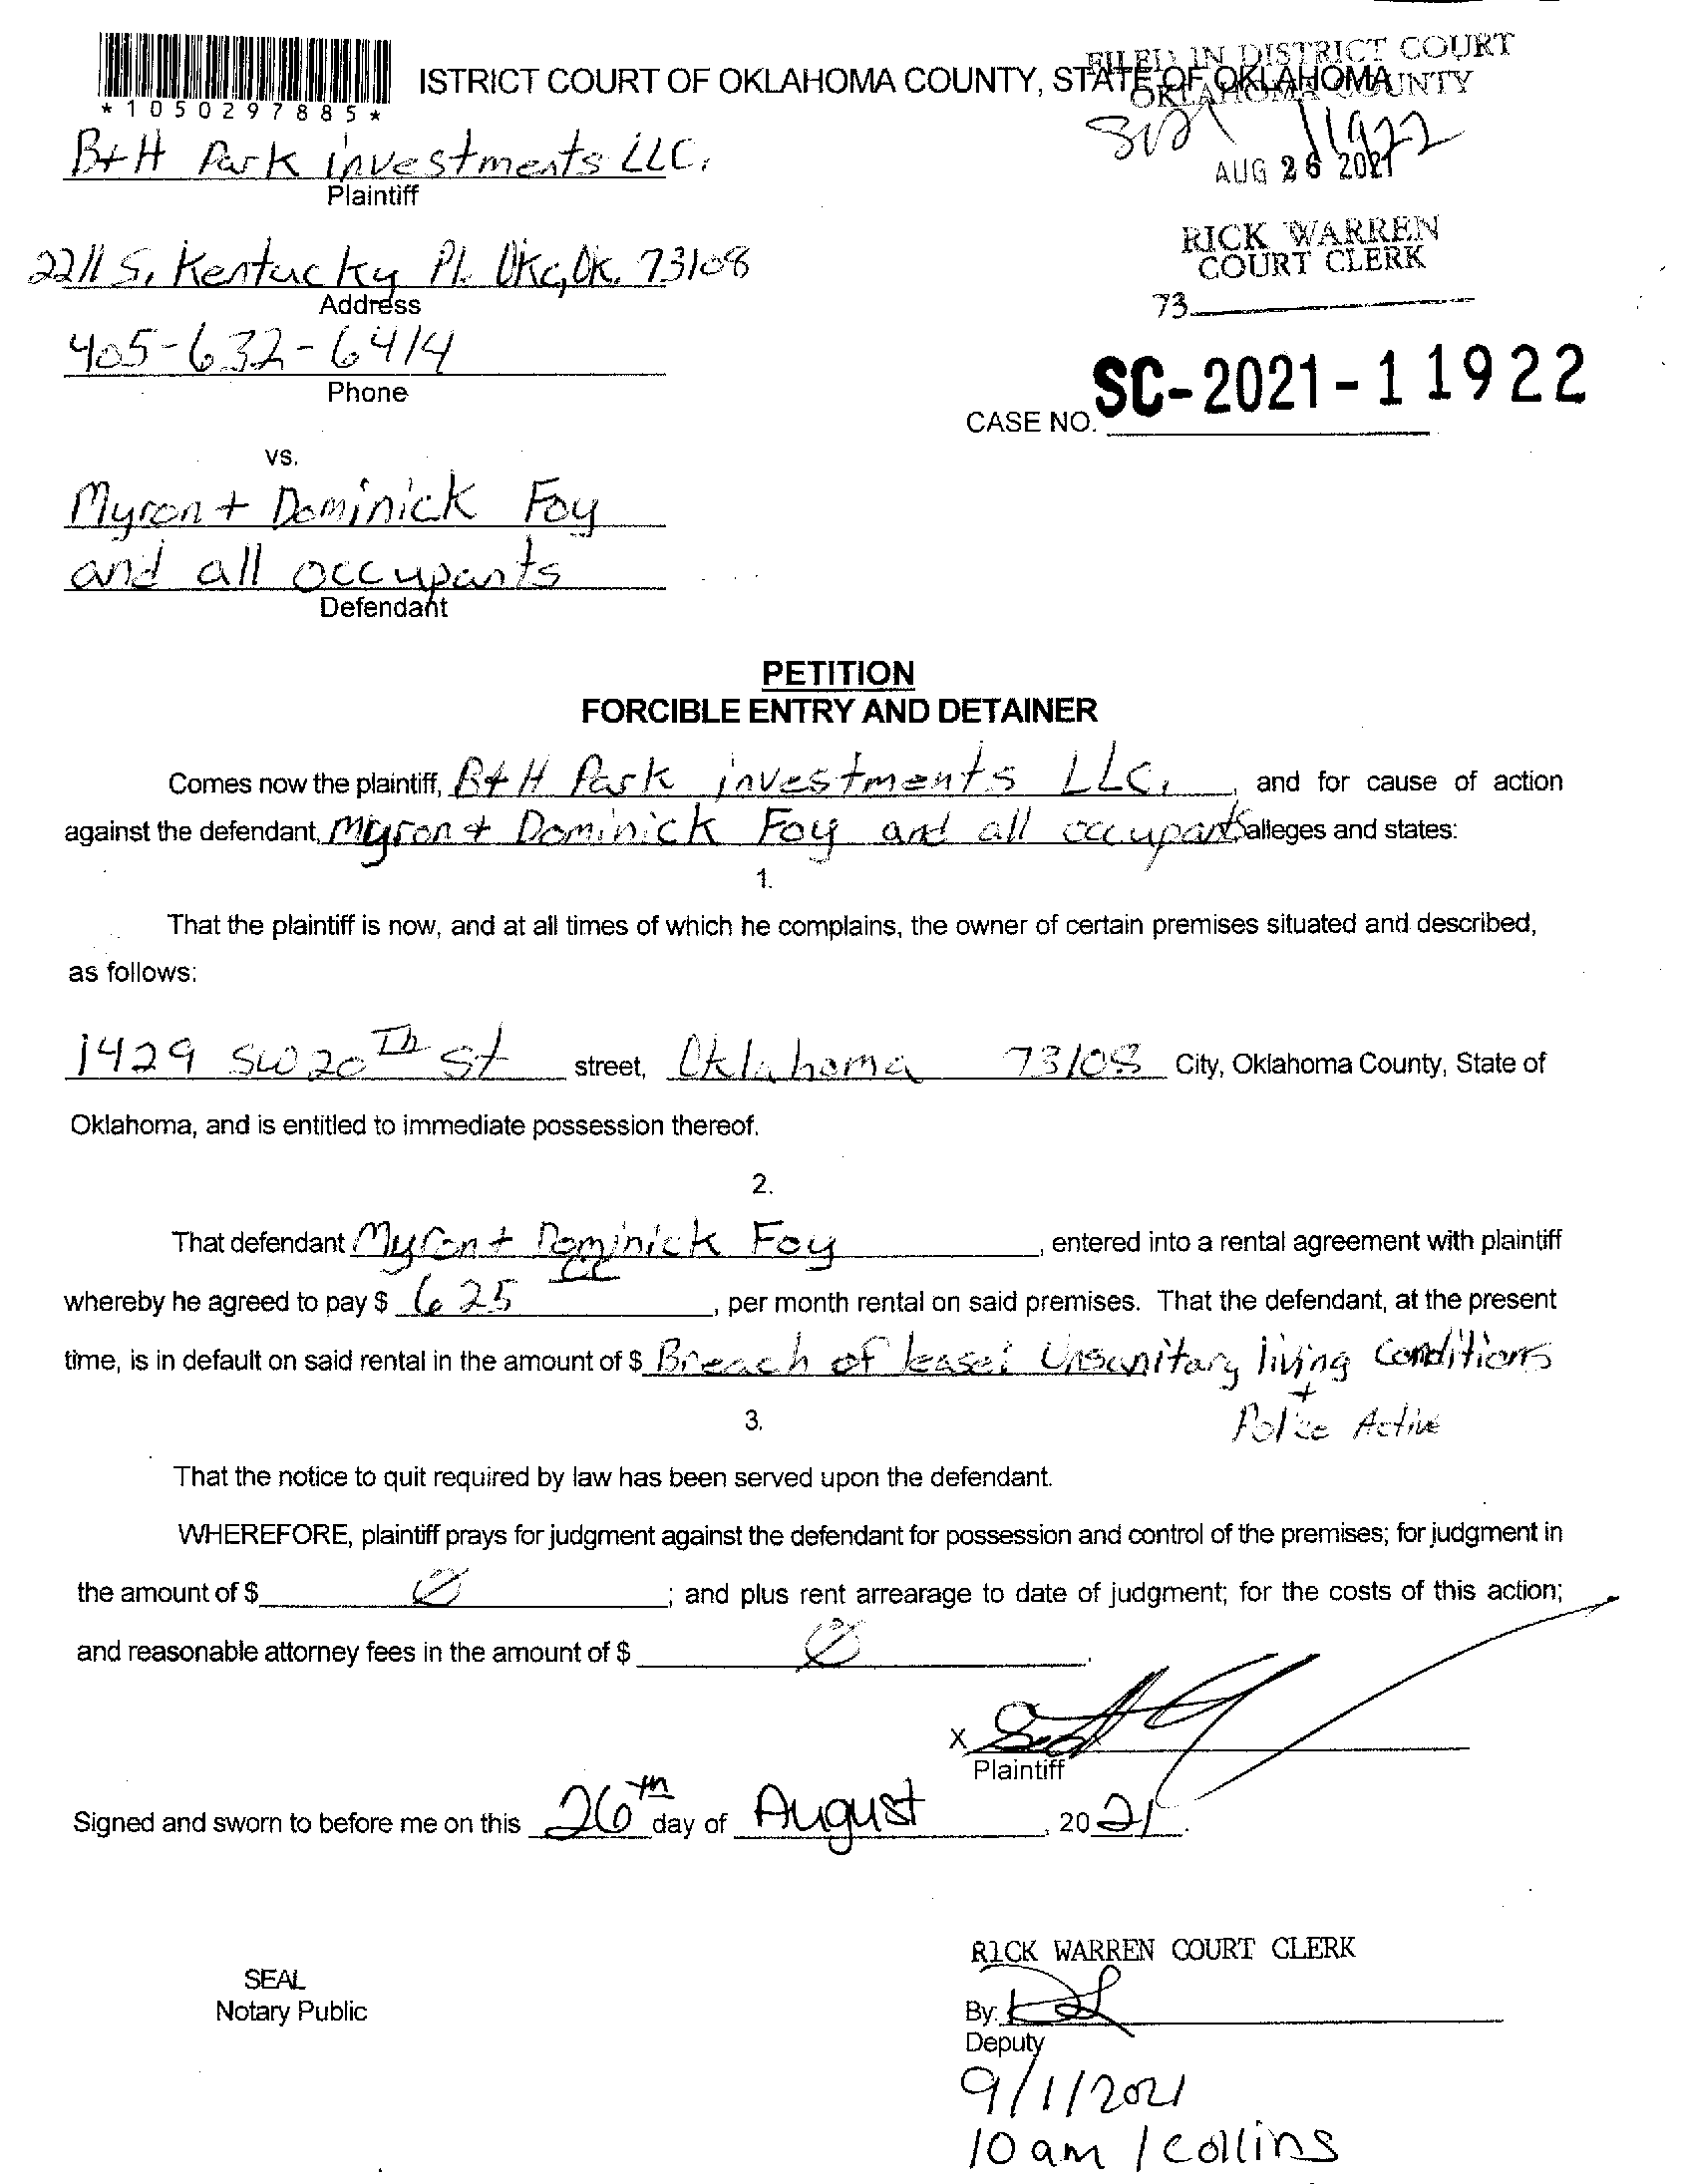 ISTRICT COURT OF OKLAHOMA COUNTY, STATE OF OKLAHOMA
FILED IN DISTRICT COURT
OKLAHOMA COUNTY
*1050297885*
B+H Park investments LLC.
Plaintiff
11922
AUG 26 2021
RICK WARREN
COURT CLERK
73
2211 S. Kentucky Pl. Okc, Ok. 73108
Address
405-632-6414
Phone
CASE NO. SC-2021-11922
vs.
Myron + Dominick Foy
and all occupants
Defendant
PETITION
FORCIBLE ENTRY AND DETAINER
Comes now the plaintiff, B+H Park investments LLC. , and for cause of action
against the defendant, Myron + Dominick Foy and all occupants alleges and states:
1.
That the plaintiff is now, and at all times of which he complains, the owner of certain premises situated and described,
as follows:
1429 SW 20Th St street, Oklahoma 73108 City, Oklahoma County, State of
Oklahoma, and is entitled to immediate possession thereof.
2.
That defendant Myron + Dominick Foy , entered into a rental agreement with plaintiff
whereby he agreed to pay $ 625 , per month rental on said premises. That the defendant, at the present
time, is in default on said rental in the amount of $ Breach of lease: Unsanitary living Conditions
+
Police Active
3.
That the notice to quit required by law has been served upon the defendant.
WHEREFORE, plaintiff prays for judgment against the defendant for possession and control of the premises; for judgment in
the amount of $ Ø ; and plus rent arrearage to date of judgment; for the costs of this action;
and reasonable attorney fees in the amount of $ Ø .
X
Plaintiff
Signed and sworn to before me on this 26th day of August , 20 21 .
RICK WARREN COURT CLERK
SEAL
Notary Public
By:
Deputy
9/1/2021
10 am / Collins